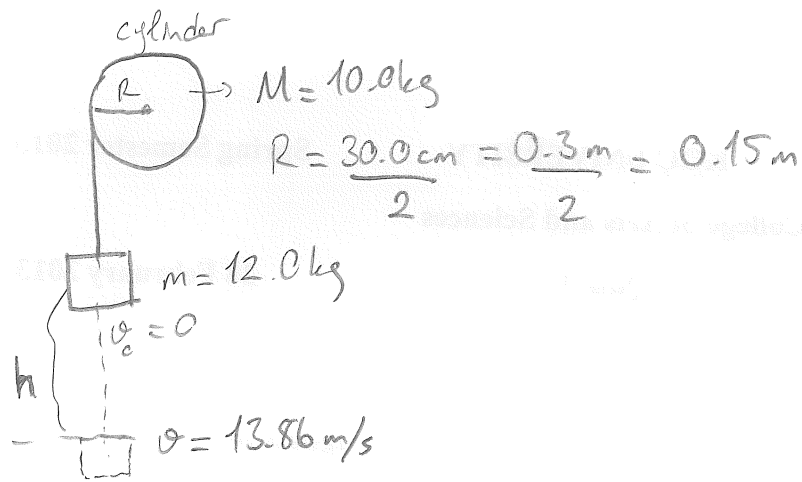 cylinder
R
M = 10.0kg
R = 30.0cm/2 = 0.3m/2 = 0.15m
m = 12.0kg
v₀ = 0
h
v = 13.86 m/s